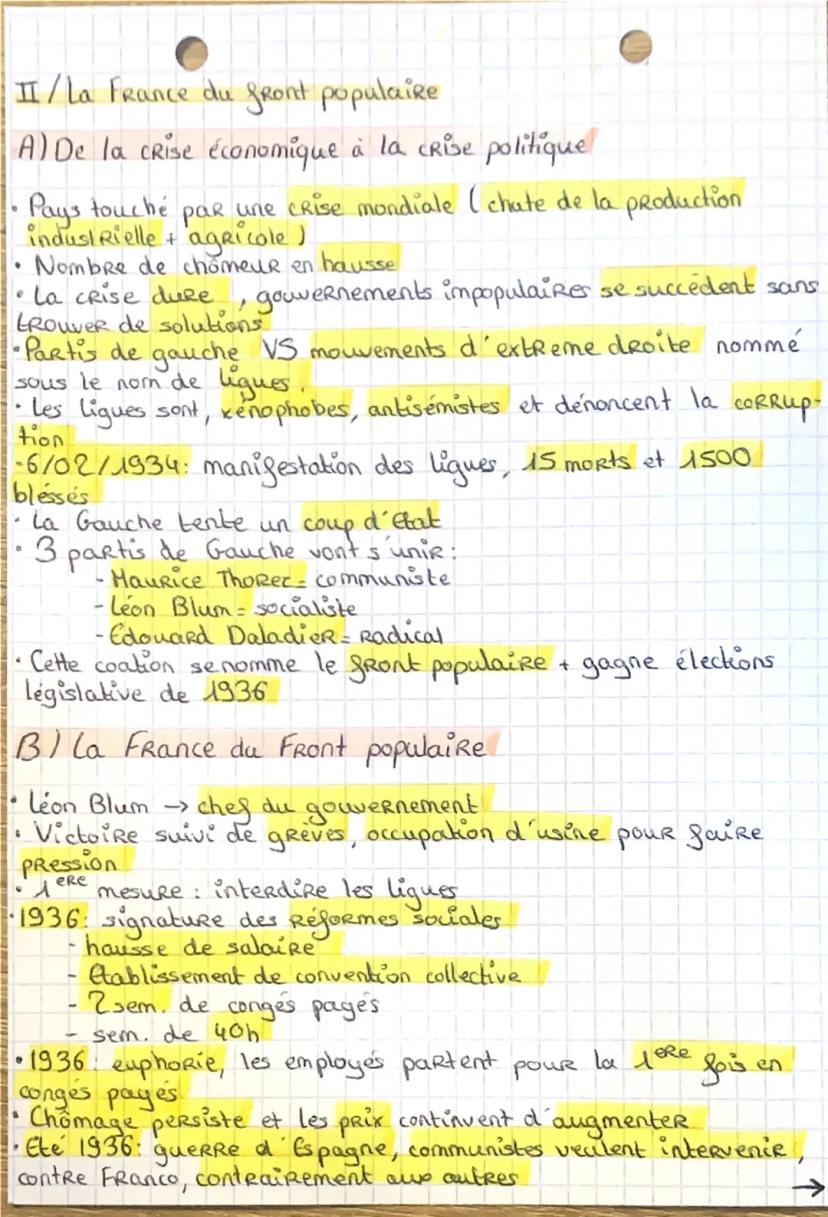 II/La France du front populaire
A) De la crise économique à la crise politique
· Pays touché par une crise mondiale (chute de la production
industrielle + agricole)
· Nombre de chômeur en hausse
· La crise dure, gouvernements impopulaires se succèdent sans
trouver de solutions
· Partis de gauche VS mouvements d'extreme droite nommé
sous le nom de ligues.
· Les ligues sont, xénophobes, antisémistes et dénoncent la corrup-
tion
-6/02/1934: manifestation des ligues, 15 morts et 1500
bléssés
· La Gauche tente un coup d'état
· 3 partis de Gauche vont s'unir:
- Maurice Thorez = communiste
- Léon Blum = socialiste
- Édouard Daladier = Radical
· Cette coation se nomme le front populaire + gagne élections
législative de 1936
B) La France du Front populaire
· Léon Blum → chef du gouvernement
· Victoire suivi de grèves, occupation d'usine pour faire
pression
· 1ERE mesure : interdire les ligues
· 1936: signature des réformes sociales
- hausse de salaire
- établissement de convention collective
- 2 sem. de congés payés
- sem. de 40h
· 1936: euphorie, les employés partent pour la 1ERE fois en
congés payés
· Chômage persiste et les prix continvent d'augmenter
· Eté 1936: guerre d'Espagne, communistes veulent intervenir,
contre Franco, contrairement aux autres
→